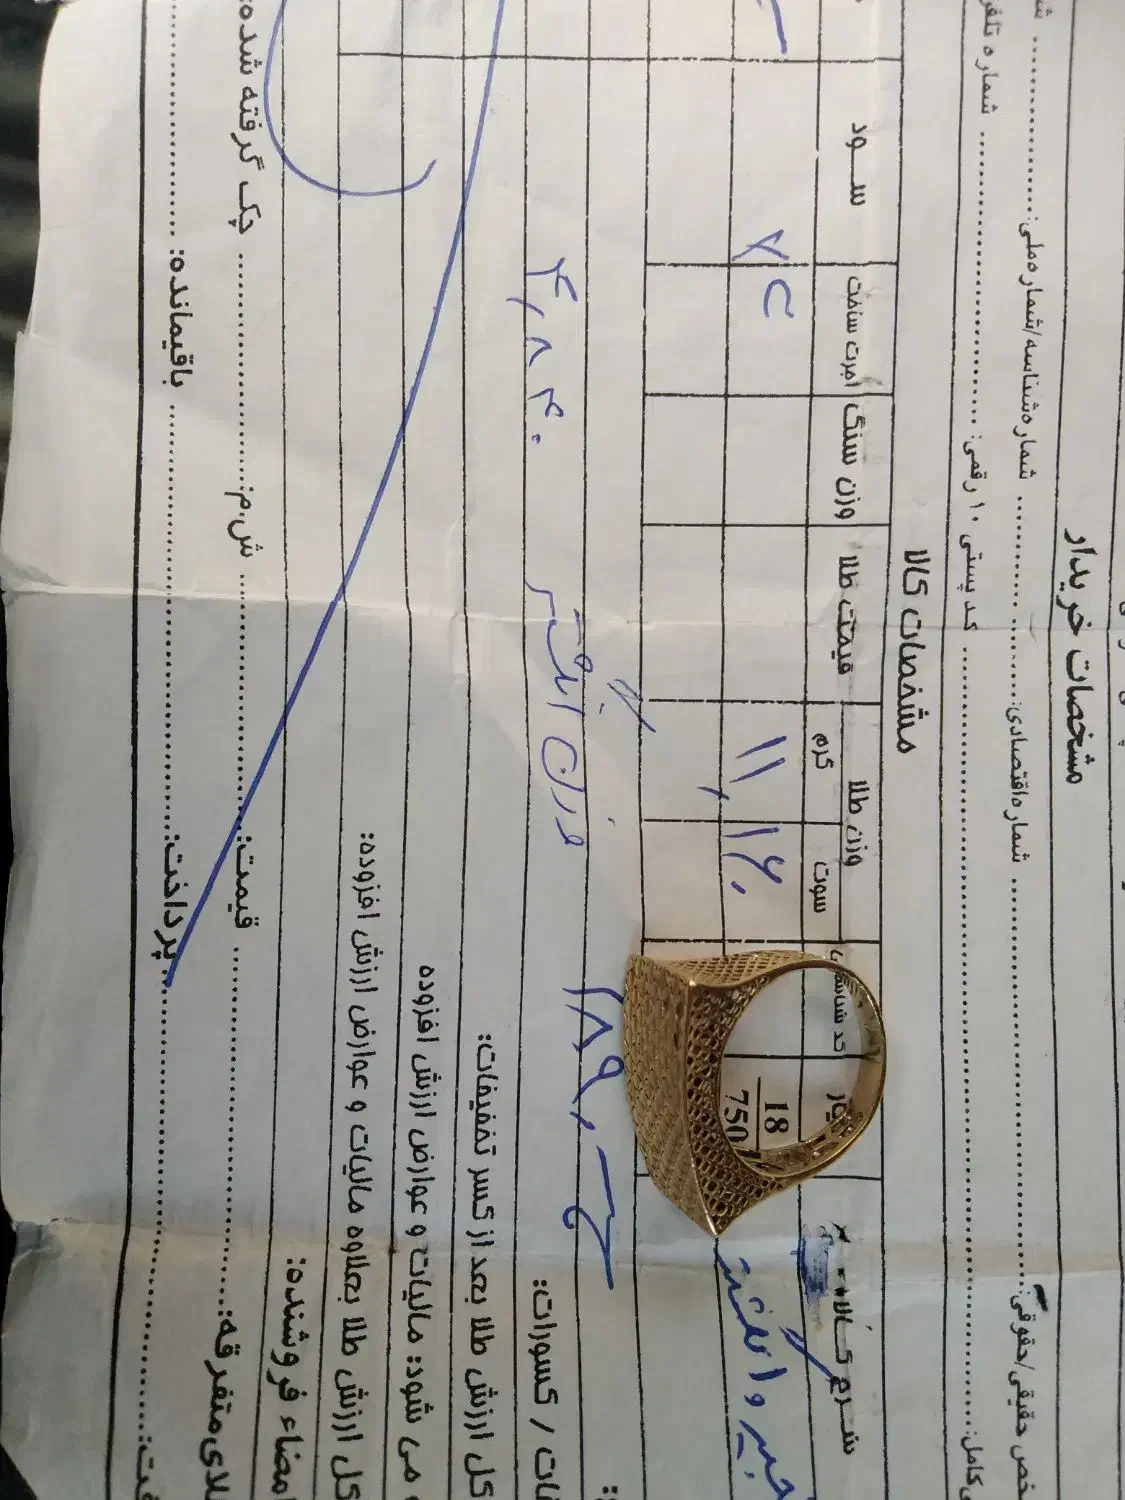 مشخصات خریدار
شخص حقیقی/حقوقی: شماره اقتصادی: شماره شناسه/شماره ملی:
کامل: کد پستی ۱۰ رقمی: شماره تلفن
مشخصات کالا
شرح کالا کد شناسه وزن طلا قیمت طلا وزن سنگ اجرت ساخت سود
سوت گرم
زنجیر و انگشتر 18 ۱۱,۱۶۰ ۷٪
750
۱۸۹,
وزن انگشتر ۴,۸۴۰
کسورات:
کل ارزش طلا بعد از کسر تخفیفات:
می شود: مالیات و عوارض ارزش افزوده
کل ارزش طلا بعلاوه مالیات و عوارض ارزش افزوده:
امضاء فروشنده:
طلای متفرقه: قیمت: ش.م: چک گرفته شده:
پرداخت: باقیمانده: